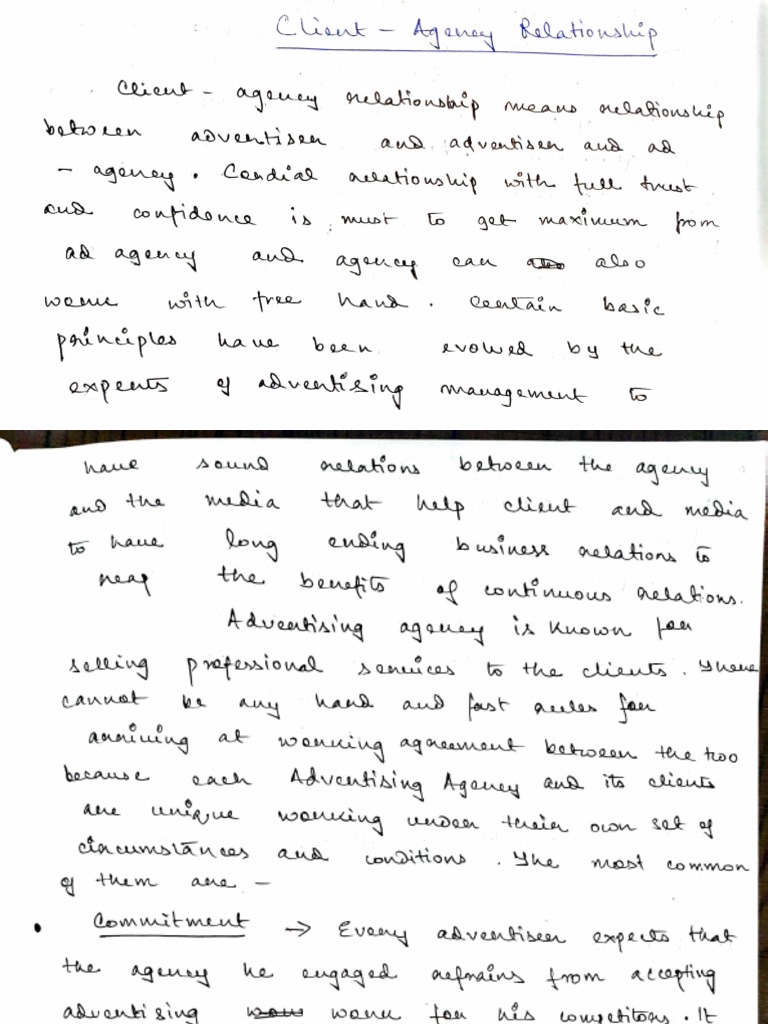 Client - Agency Relationship
Client - agency relationship means relationship
between advertiser and advertiser and ad
- agency. Cordial relationship with full trust
and confidence is must to get maximum from
ad agency and agency can also
work with free hand. Certain basic
principles have been evolved by the
experts of advertising management to
have sound relations between the agency
and the media that help client and media
to have long ending business relations to
reap the benefits of continuous relations.
Advertising agency is known for
selling professional services to the clients. There
cannot be any hard and fast rules for
arriving at working agreement between the two
because each Advertising Agency and its clients
are unique working under their own set of
circumstances and conditions. The most common
of them are -
• Commitment → Every advertiser expects that
the agency he engaged refrains from accepting
advertising work for his competitors. It